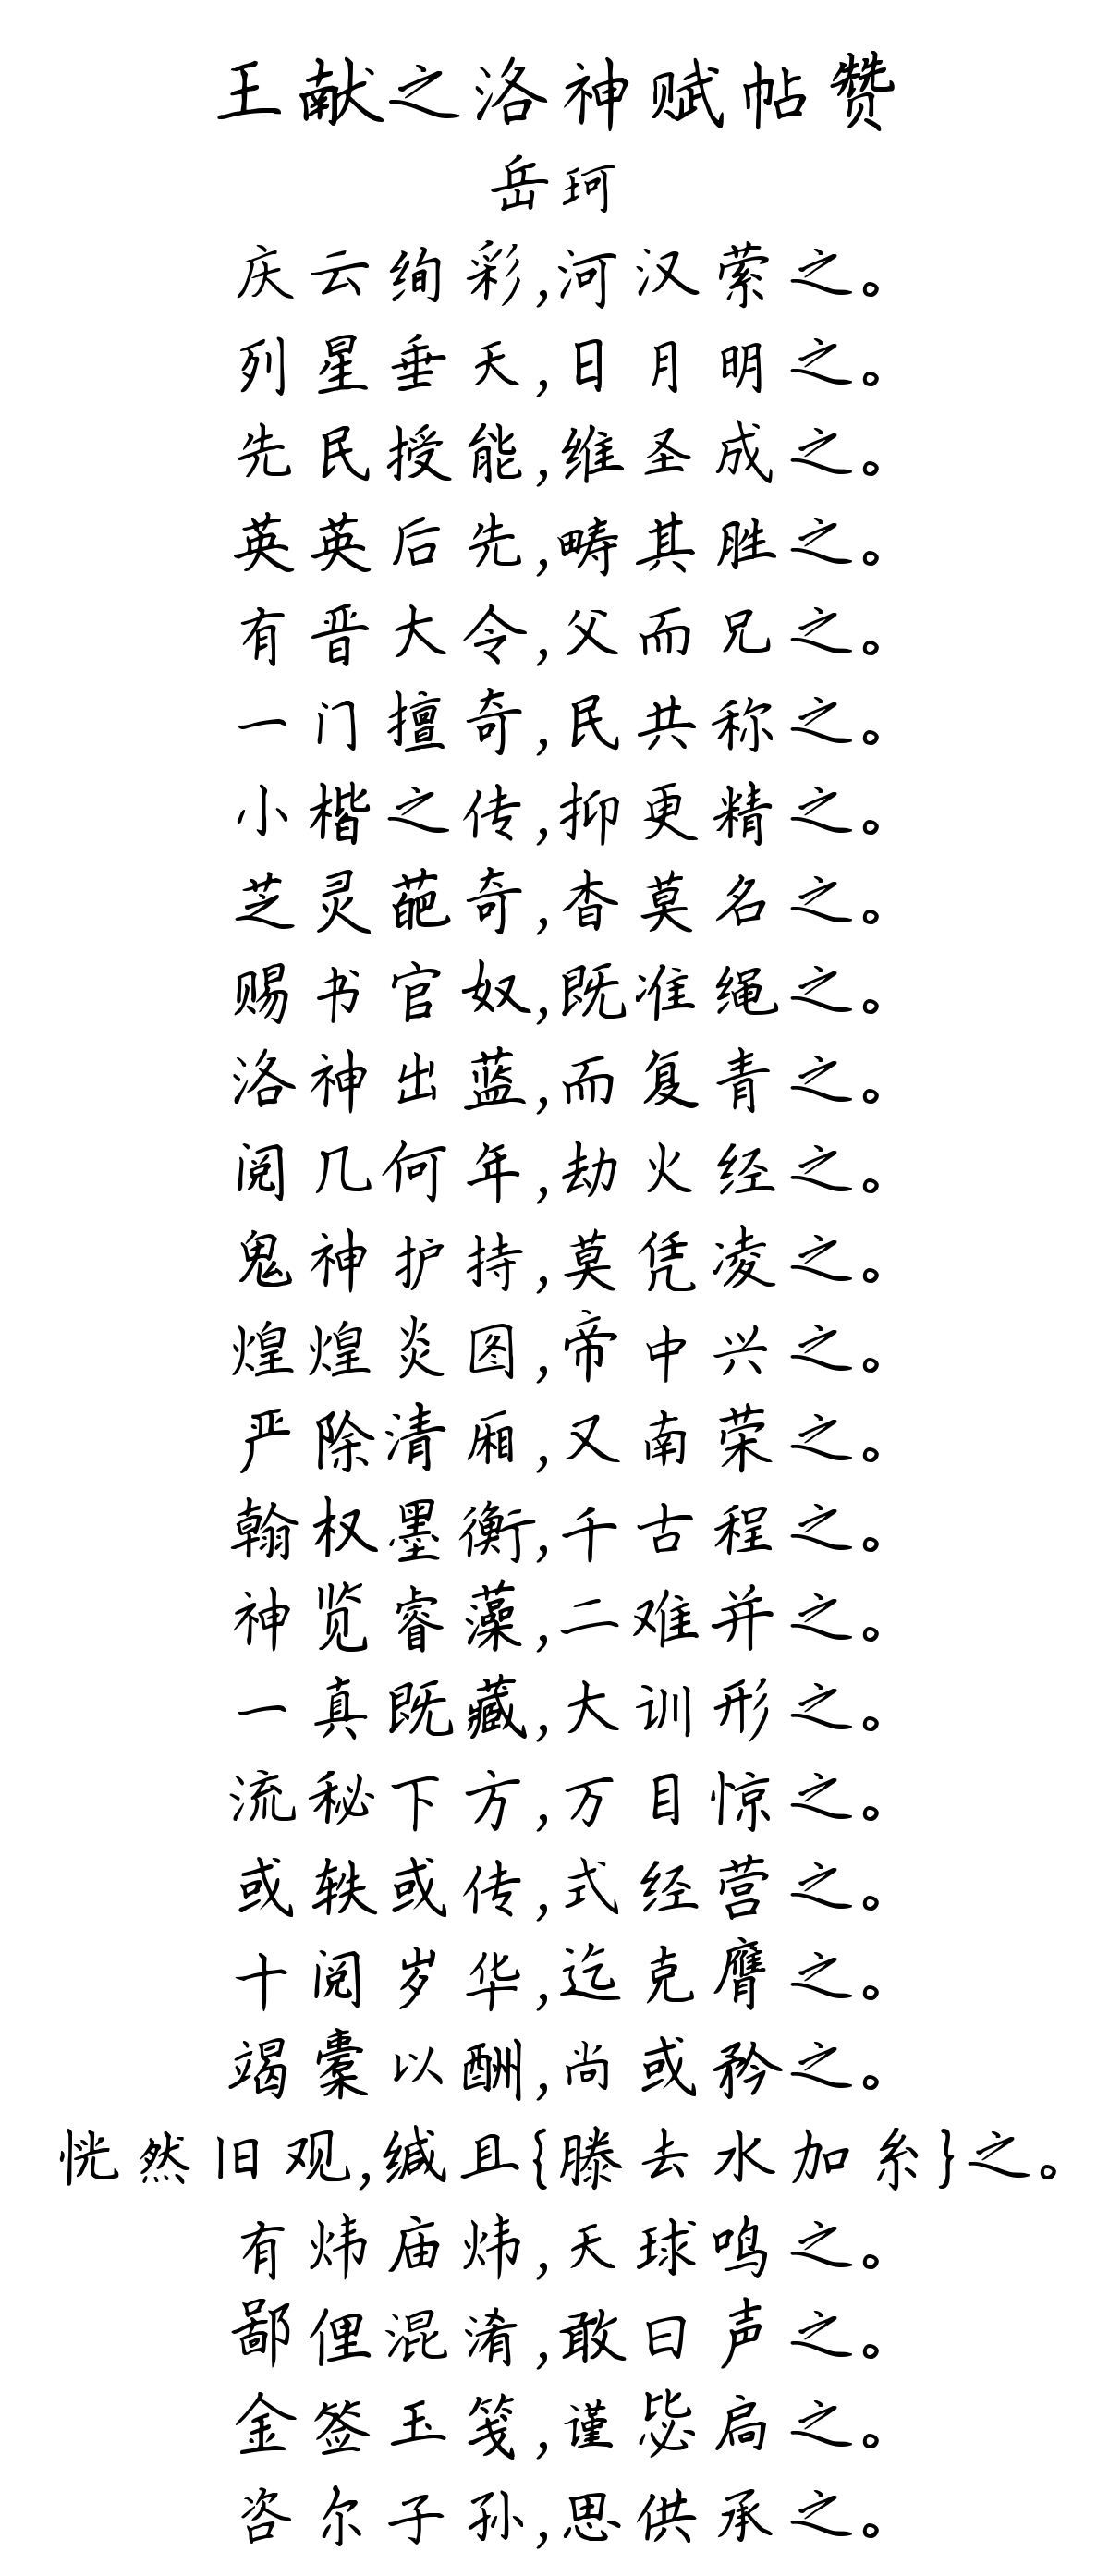 王献之洛神赋帖赞
岳珂
庆云绚彩,河汉萦之。
列星垂天,日月明之。
先民授能,维圣成之。
英英后先,畴其胜之。
有晋大令,父而兄之。
一门擅奇,民共称之。
小楷之传,抑更精之。
芝灵葩奇,杳莫名之。
赐书官奴,既准绳之。
洛神出蓝,而复青之。
阅几何年,劫火经之。
鬼神护持,莫凭凌之。
煌煌炎图,帝中兴之。
严除清厢,又南荣之。
翰权墨衡,千古程之。
神览睿藻,二难并之。
一真既藏,大训形之。
流秘下方,万目惊之。
或轶或传,式经营之。
十阅岁华,迄克膺之。
竭橐以酬,尚或矜之。
恍然旧观,缄且{滕去水加糸}之。
有炜庙炜,天球鸣之。
鄙俚混淆,敢曰声之。
金签玉笺,谨毖扃之。
咨尔子孙,思供承之。